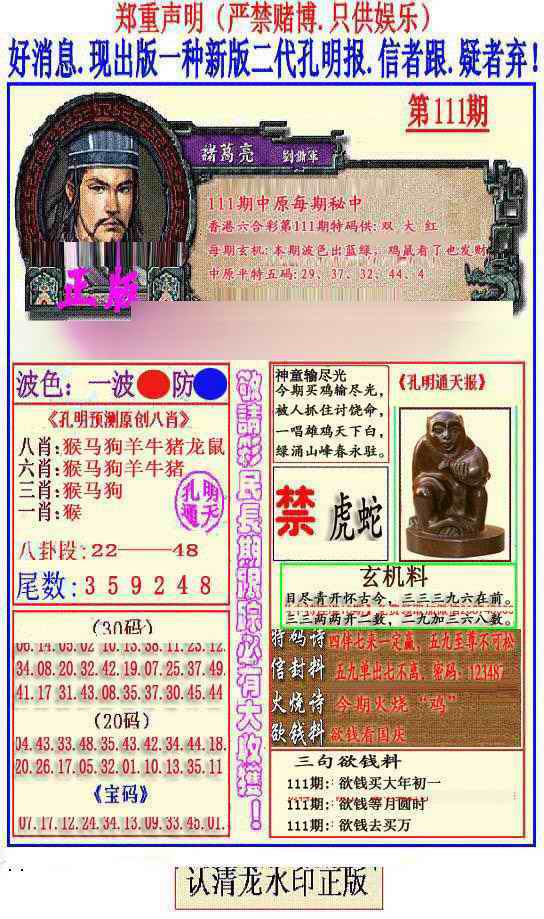 郑重声明（严禁赌博.只供娱乐）
好消息.现出版一种新版二代孔明报.信者跟.疑者弃！
第111期
諸葛亮
劉謝軍
111期中原每期秘中
香港六合彩第111期特码供:双 大 红
每期玄机:本期波色出蓝绿、鸡鼠看了也发财
中原平特五码:29、37、32、44、4
正版
波色：一波 防
《孔明预测原创八肖》
八肖:猴马狗羊牛猪龙鼠
六肖:猴马狗羊牛猪
三肖:猴马狗
一肖:猴
孔明
通天
八卦段:22——48
尾数:359248
敬請彩民長期跟踪必有大收獲！
神童输尽光
今期买鸡输尽光，
被人抓住讨饶命，
一唱雄鸡天下白，
绿涌山峰春永驻。
《孔明通天报》
禁
虎蛇
玄机料
目尽青开怀古今，三三三九六在前。
三三两两开一数，二九加三六八数。
(30码)
06.14.05.02.10.13.38.11.23.12.
34.08.20.32.42.19.07.25.37.49.
41.17.31.43.08.35.37.30.45.44
(20码)
04.43.33.48.35.43.42.34.44.18.
20.26.17.05.32.01.10.13.35.11
《宝码》
07.17.12.24.34.13.09.33.45.01.
特码诗 四伴七来一定赢，五九至尊不可松
信封料 五九单出七不高，密码：123487
火烧诗 今期火烧“鸡”
欲钱料 欲钱看国庆
三句欲钱料
111期:欲钱买大年初一
111期:欲钱等月圆时
111期:欲钱去买万
认清龙水印正版